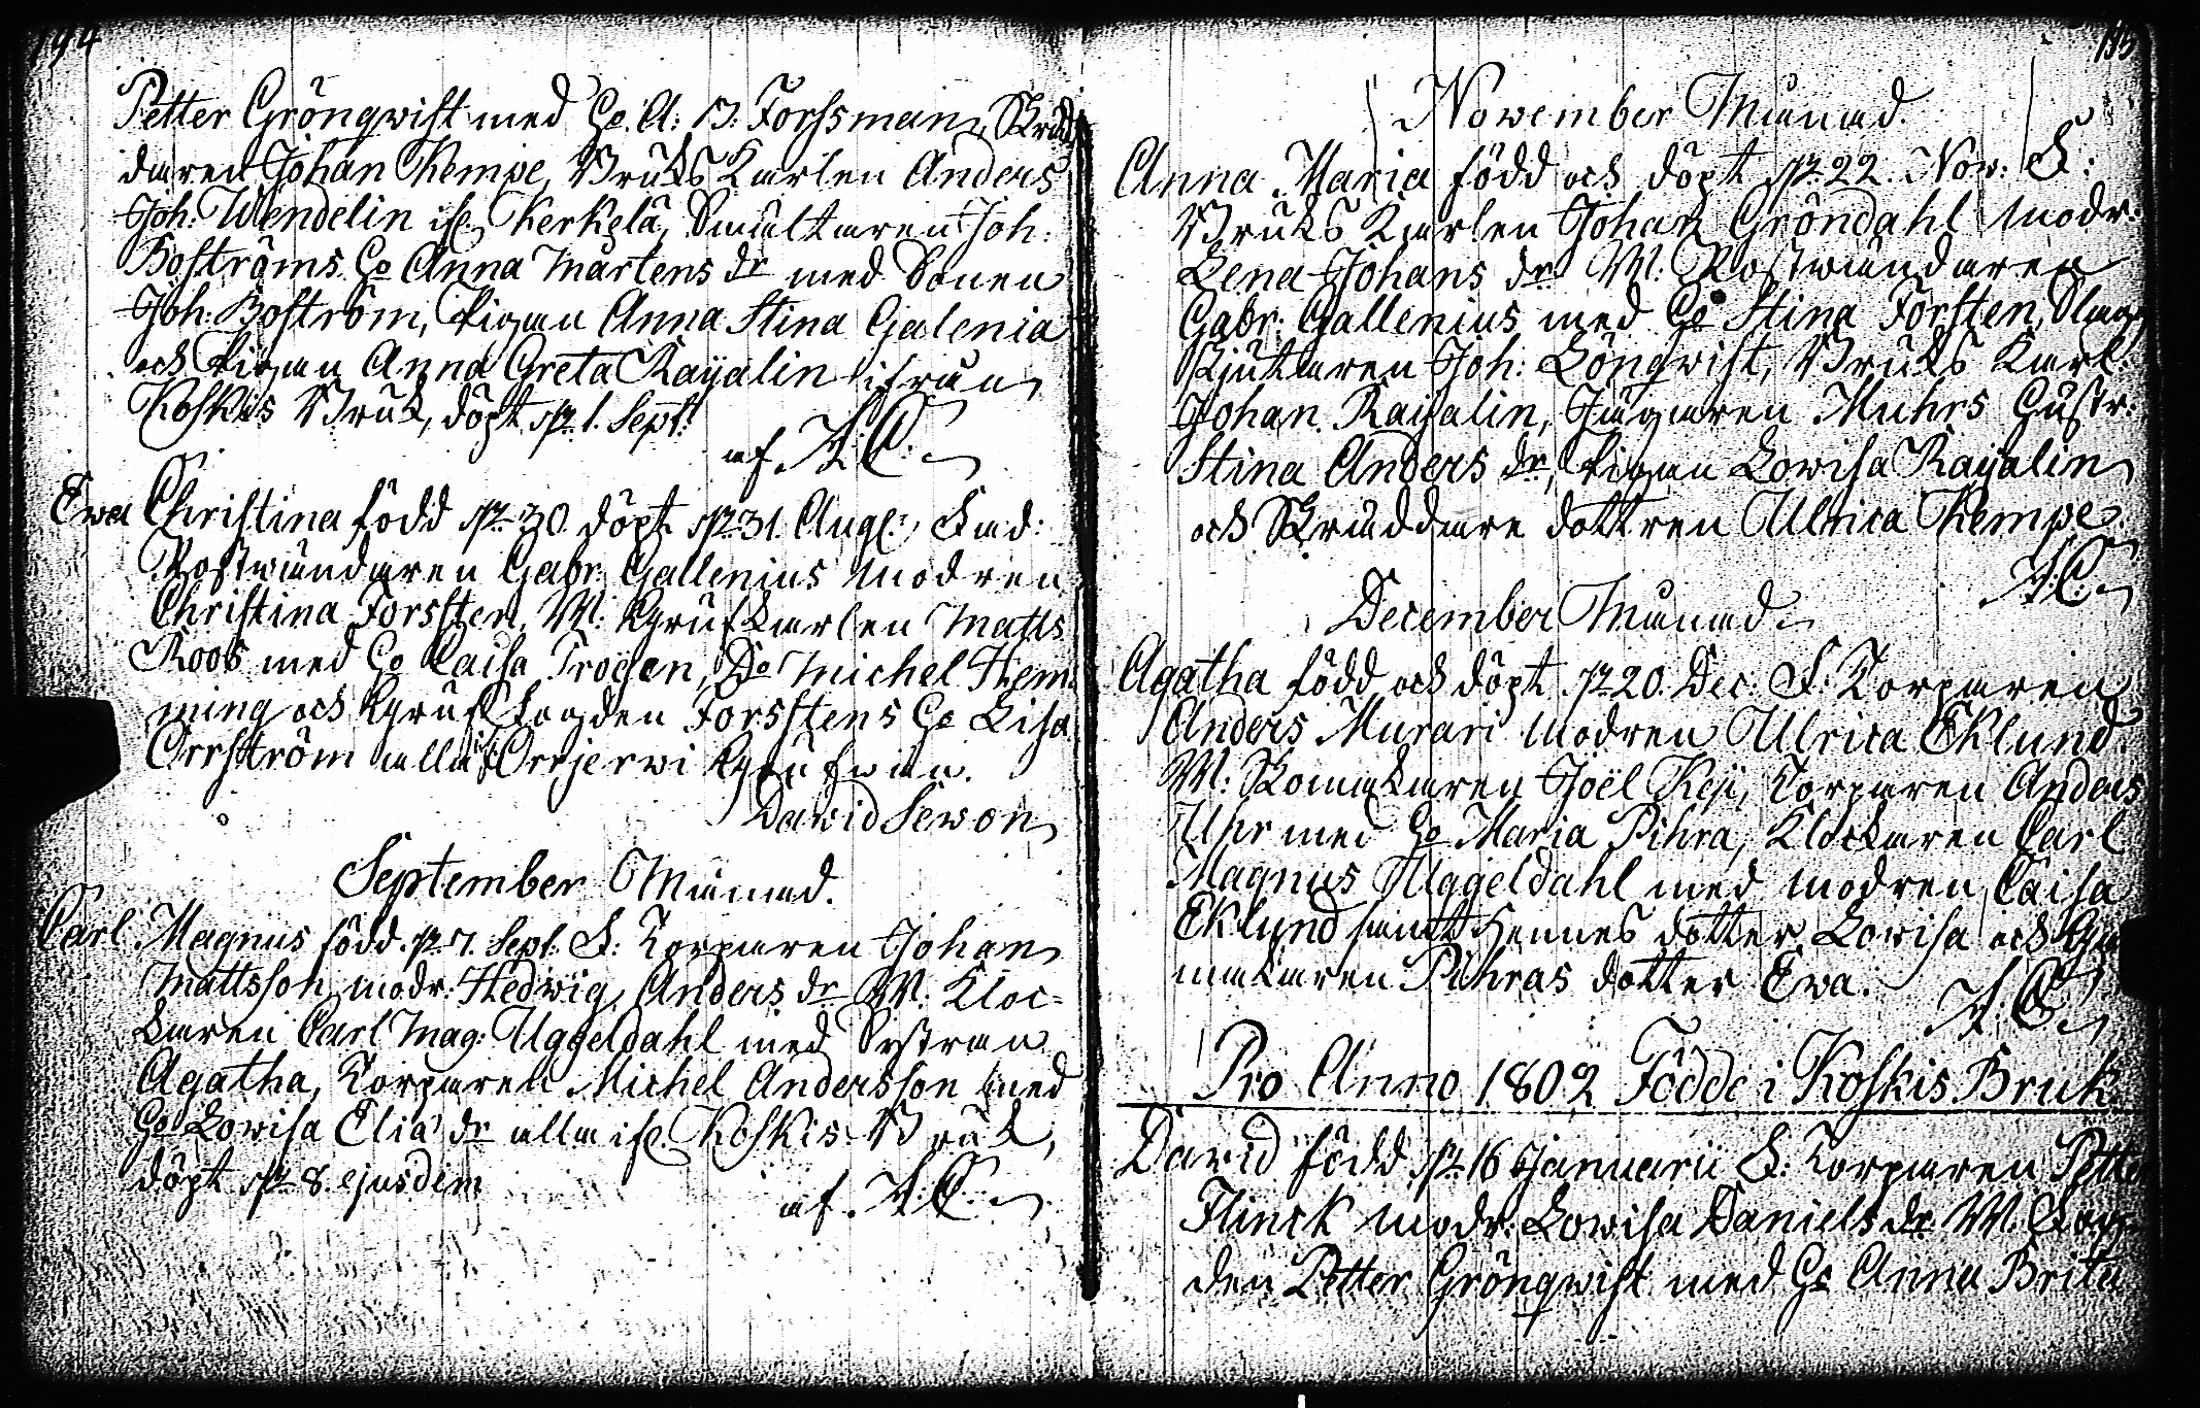 194
Petter Grönqwist med H:o A: B: Forssman, Skräd
daren Johan Kempe, Bruks Karlen Anders
Joh: Wendelin ifr. Kerkelä, Smältaren Joh:
Boströms H:o Anna Mårtens dr med Sonen
Joh: Boström, Pigan Anna Stina Galenia
och Pigan Anna Greta Rayalin ifrån
Koskis Bruk, döpt d. 1. Sept:
af A. C.
Ewa Christina född d. 30. döpt d. 31. Aug:, Fad:
Rostwändaren Gabr: Gallenius modren
Christina Forssten, W: Grufkarlen Matts
Roos med H:o Caisa Trogen, D:o Michel Hem
ming och Gruffougden Forsstens H:o Lisa
Orrström alla ifr. Orrjerwi Grufwa.
David Sewon
September Månad.
Carl Magnus född d. 7. Sept: F: Torparen Johan
Mattsson, modr: Hedwig Anders dr W: Kloc=
karen Carl Mag: Uggeldahl med Systran
Agatha, Torparen Michel Andersson med
H:o Lowisa Elia dr alla ifr. Koskis Bruk,
döpt d. 8. ejusdem
af. A. C.
195
November Månad.
Anna Maria född och döpt d. 22. Nov: F:
Bruks Karlen Johan Gröndahl modr:
Lena Johans dr W: Rostwändaren
Gabr: Gallenius med H:o Stina Forsten, Slagg
skjutaren Joh: Löngwist, Bruks Karl:
Johan Rayalin, Jägaren Muhrs Hustr:
Stina Anders dr, Pigan Lowisa Rayalin
och Skräddare dottren Ulrica Kempe.
A. C.
December Månad.
Agatha född och döpt d. 20. Dec: F: Torparen
Anders Murari modren Ulrica Eklund
W: Skomakaren Joël Keji, Torparen Anders
Uhr med H:o Maria Pihra, Klockaren Carl
Magnus Uggeldahl med modren Caisa
Eklund samt hennes dotter Lowisa och
makaren Pihras dotter Ewa.
A. C.
Pro Anno 1802 Födde i Koskis Bruk
David född d. 16 Januarii F: Torparen Pette
Flinck modr: Lowisa Daniels dr W: Foug
den Petter Grönqwist med H:o Anna Brita